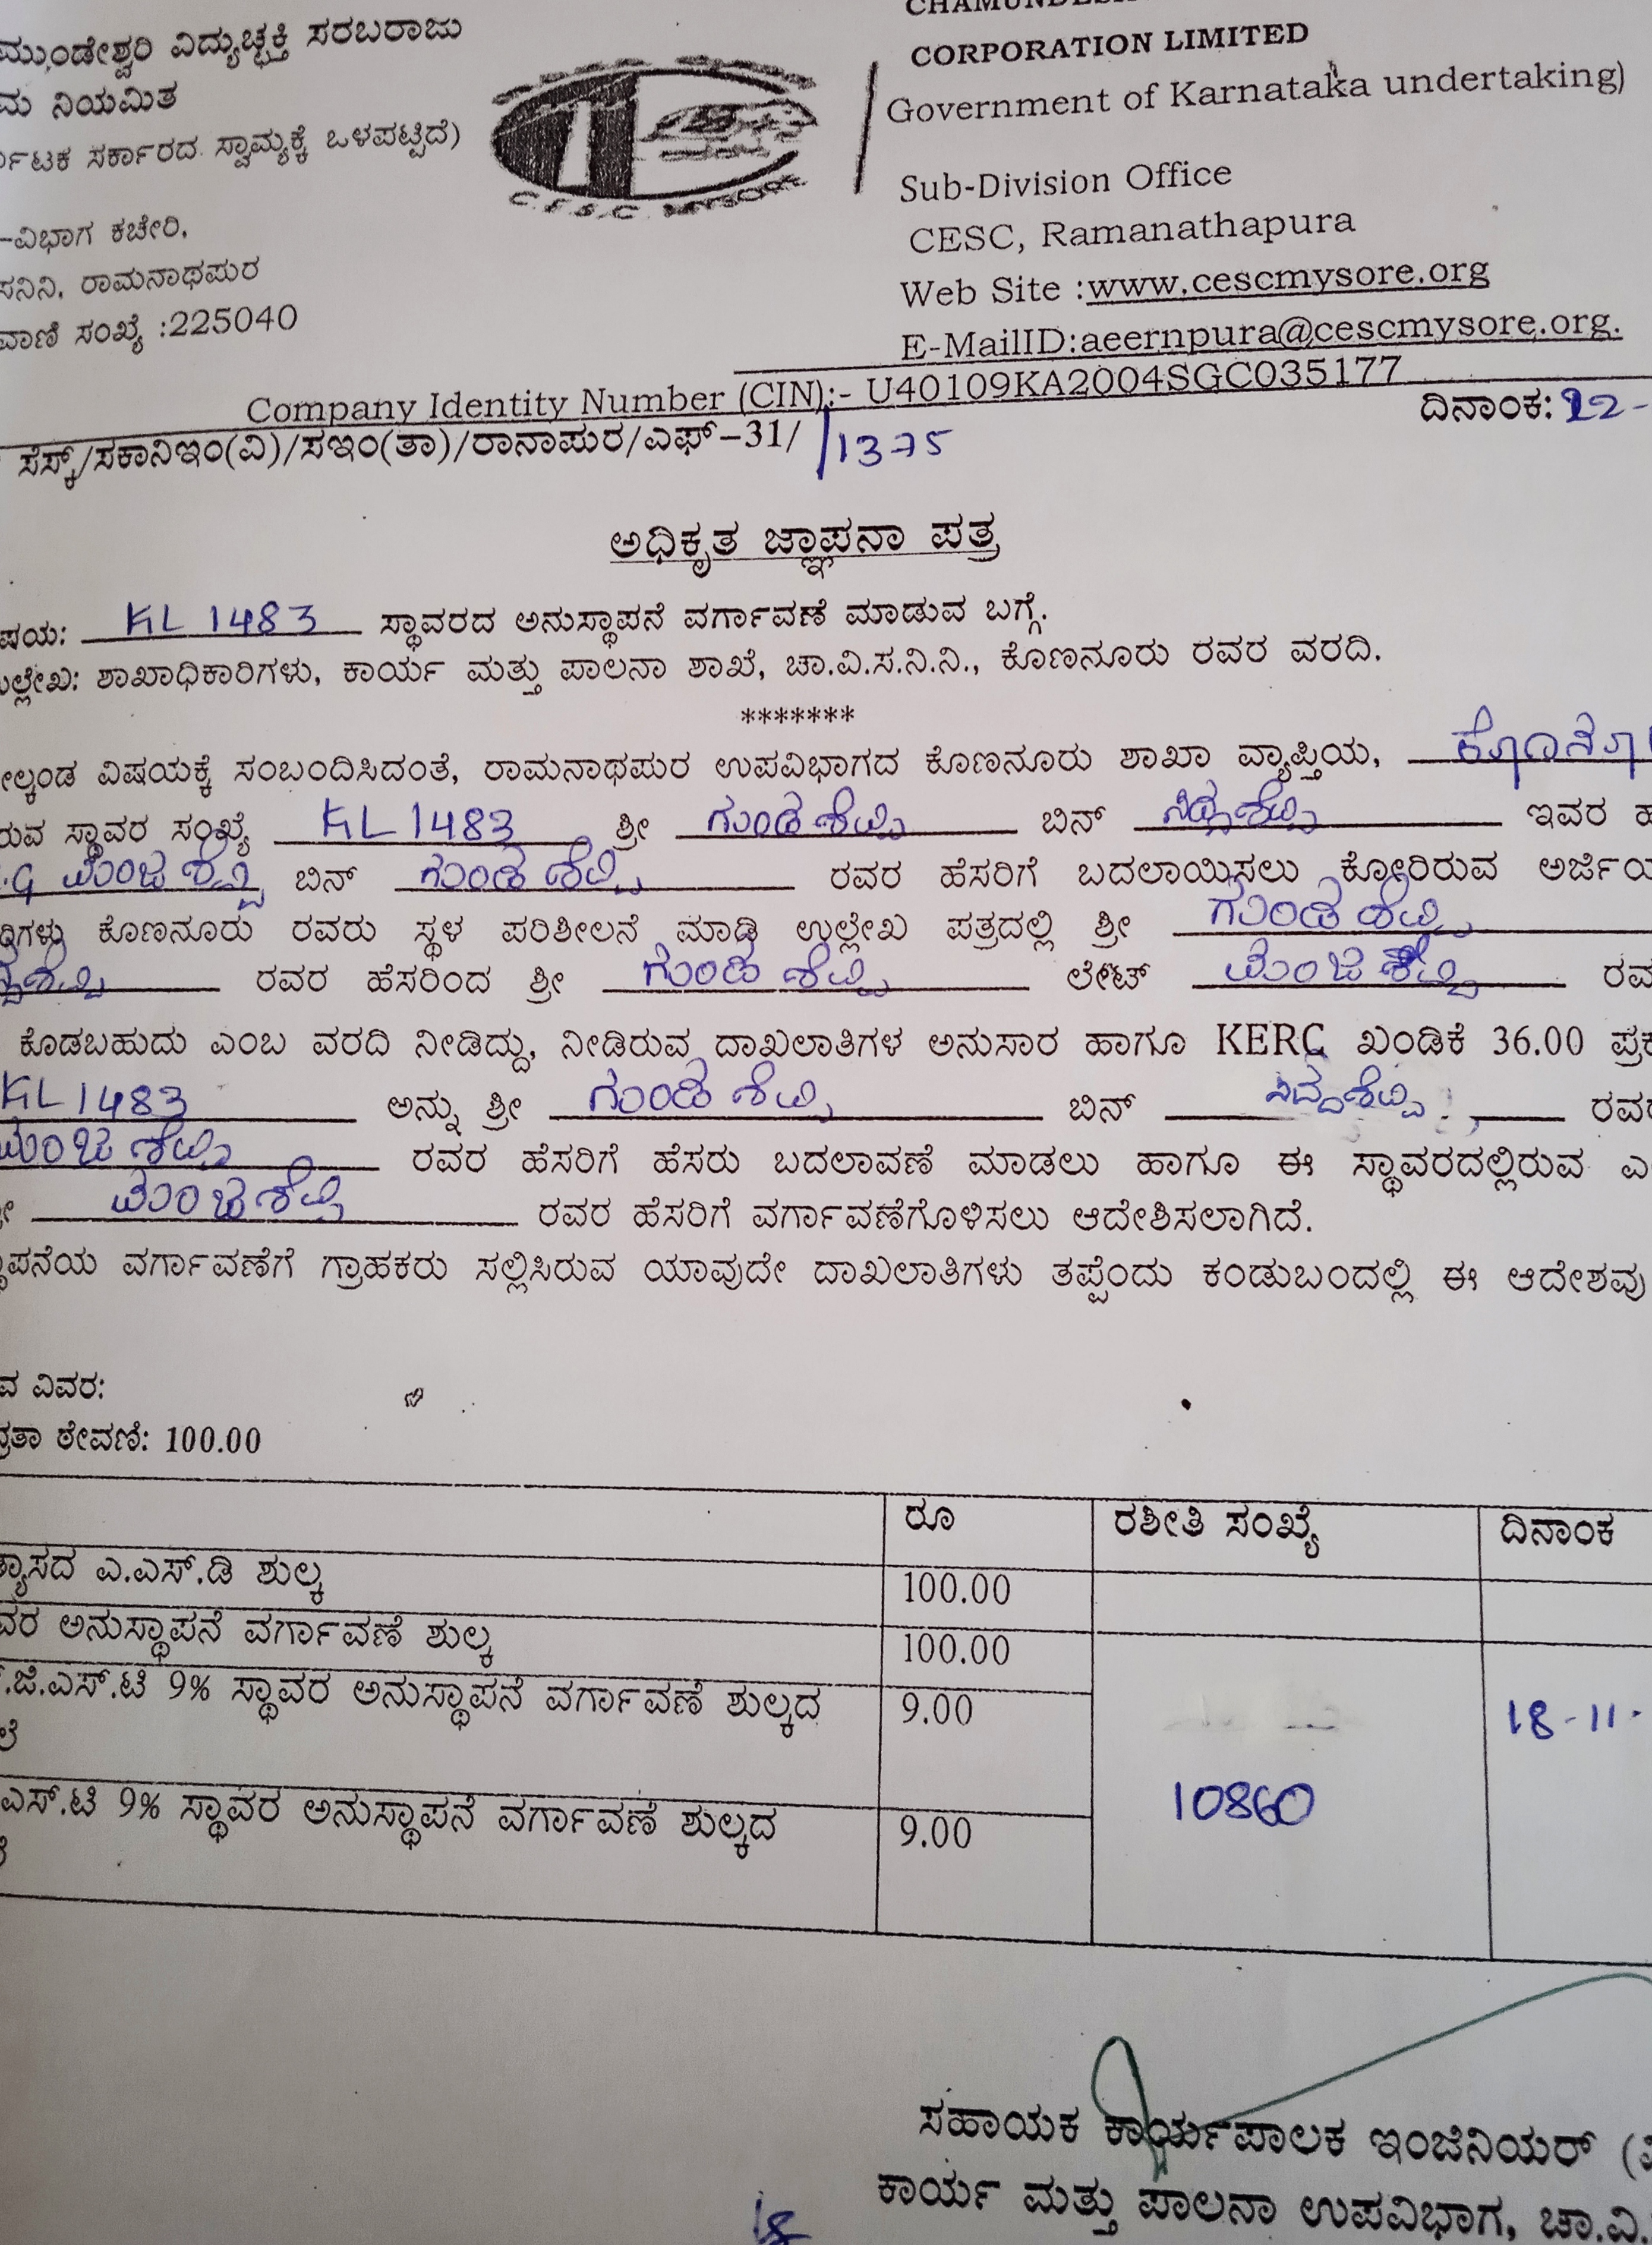 ಮುಂಡೇಶ್ವರಿ ವಿದ್ಯುಚ್ಛಕ್ತಿ ಸರಬರಾಜು
ಮ ನಿಯಮಿತ
ರ್ನಾಟಕ ಸರ್ಕಾರದ ಸ್ವಾಮ್ಯಕ್ಕೆ ಒಳಪಟ್ಟಿದೆ)
-ವಿಭಾಗ ಕಚೇರಿ,
ಸನಿನಿ, ರಾಮನಾಥಪುರ
ವಾಣಿ ಸಂಖ್ಯೆ :225040
C.E.S.C. MYSORE
CORPORATION LIMITED
Government of Karnataka undertaking)
Sub-Division Office
CESC, Ramanathapura
Web Site :www.cescmysore.org
E-MailID:aeernpura@cescmysore.org.
Company Identity Number (CIN):- U40109KA2004SGC035177
ಸೆಸ್ಕ್/ಸಕಾನಿಇಂ(ವಿ)/ಸಇಂ(ತಾ)/ರಾನಾಪುರ/ಎಫ್-31/ /1375 ದಿನಾಂಕ: 22-
ಅಧಿಕೃತ ಜ್ಞಾಪನಾ ಪತ್ರ
ಷಯ: KL 1483 ಸ್ಥಾವರದ ಅನುಸ್ಥಾಪನೆ ವರ್ಗಾವಣೆ ಮಾಡುವ ಬಗ್ಗೆ.
ಲ್ಲೇಖ: ಶಾಖಾಧಿಕಾರಿಗಳು, ಕಾರ್ಯ ಮತ್ತು ಪಾಲನಾ ಶಾಖೆ, ಚಾ.ವಿ.ಸ.ನಿ.ನಿ., ಕೊಣನೂರು ರವರ ವರದಿ.
*******
ೇಲ್ಕಂಡ ವಿಷಯಕ್ಕೆ ಸಂಬಂದಿಸಿದಂತೆ, ರಾಮನಾಥಪುರ ಉಪವಿಭಾಗದ ಕೊಣನೂರು ಶಾಖಾ ವ್ಯಾಪ್ತಿಯ,
ರುವ ಸ್ಥಾವರ ಸಂಖ್ಯೆ KL 1483 ಶ್ರೀ ಗುಂಡಶೆಟ್ಟಿ ಬಿನ್ ಸಿದ್ದಶೆಟ್ಟಿ ಇವರ
.G ಮಂಜಶೆಟ್ಟಿ ಬಿನ್ ಗುಂಡಶೆಟ್ಟಿ ರವರ ಹೆಸರಿಗೆ ಬದಲಾಯಿಸಲು ಕೋರಿರುವ ಅರ್ಜಿಯ
ಕೊಣನೂರು ರವರು ಸ್ಥಳ ಪರಿಶೀಲನೆ ಮಾಡಿ ಉಲ್ಲೇಖ ಪತ್ರದಲ್ಲಿ ಶ್ರೀ ಗುಂಡಶೆಟ್ಟಿ
ರವರ ಹೆಸರಿಂದ ಶ್ರೀ ಗುಂಡಶೆಟ್ಟಿ ಲೇಟ್ ಮಂಜಶೆಟ್ಟಿ ರವ
ಕೊಡಬಹುದು ಎಂಬ ವರದಿ ನೀಡಿದ್ದು, ನೀಡಿರುವ ದಾಖಲಾತಿಗಳ ಅನುಸಾರ ಹಾಗೂ KERC ಖಂಡಿಕೆ 36.00 ಪ್ರಕ
KL 1483 ಅನ್ನು ಶ್ರೀ ಗುಂಡಶೆಟ್ಟಿ ಬಿನ್ ಸಿದ್ದಶೆಟ್ಟಿ ರವರ
ಮಂಜಶೆಟ್ಟಿ ರವರ ಹೆಸರಿಗೆ ಹೆಸರು ಬದಲಾವಣೆ ಮಾಡಲು ಹಾಗೂ ಈ ಸ್ಥಾವರದಲ್ಲಿರುವ ಎ
ಮಂಜಶೆಟ್ಟಿ ರವರ ಹೆಸರಿಗೆ ವರ್ಗಾವಣೆಗೊಳಿಸಲು ಆದೇಶಿಸಲಾಗಿದೆ.
ಪನೆಯ ವರ್ಗಾವಣೆಗೆ ಗ್ರಾಹಕರು ಸಲ್ಲಿಸಿರುವ ಯಾವುದೇ ದಾಖಲಾತಿಗಳು ತಪ್ಪೆಂದು ಕಂಡುಬಂದಲ್ಲಿ ಈ ಆದೇಶವು
ವ ವಿವರ:
ದ್ರತಾ ಠೇವಣಿ: 100.00
ರೂ ರಶೀತಿ ಸಂಖ್ಯೆ ದಿನಾಂಕ
ತ್ಯಾಸದ ಎ.ಎಸ್.ಡಿ ಶುಲ್ಕ 100.00
ವರ ಅನುಸ್ಥಾಪನೆ ವರ್ಗಾವಣೆ ಶುಲ್ಕ 100.00
.ಜಿ.ಎಸ್.ಟಿ 9% ಸ್ಥಾವರ ಅನುಸ್ಥಾಪನೆ ವರ್ಗಾವಣೆ ಶುಲ್ಕದ 9.00 18-11-
ಲೆ
ಎಸ್.ಟಿ 9% ಸ್ಥಾವರ ಅನುಸ್ಥಾಪನೆ ವರ್ಗಾವಣೆ ಶುಲ್ಕದ 9.00 10860
ಸಹಾಯಕ ಕಾರ್ಯಪಾಲಕ ಇಂಜಿನಿಯರ್ (ವಿ
ಕಾರ್ಯ ಮತ್ತು ಪಾಲನಾ ಉಪವಿಭಾಗ, ಚಾ.ವಿ.